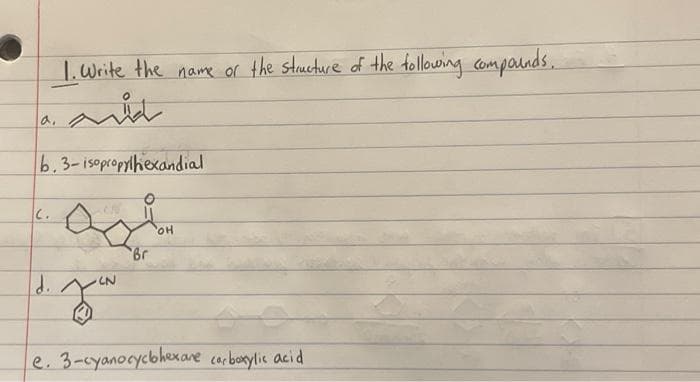 1. Write the name or the structure of the following compounds.
a. O
b. 3-isopropylhexandial
c. O OH
Br
d. CN
e. 3-cyanocyclohexane carboxylic acid